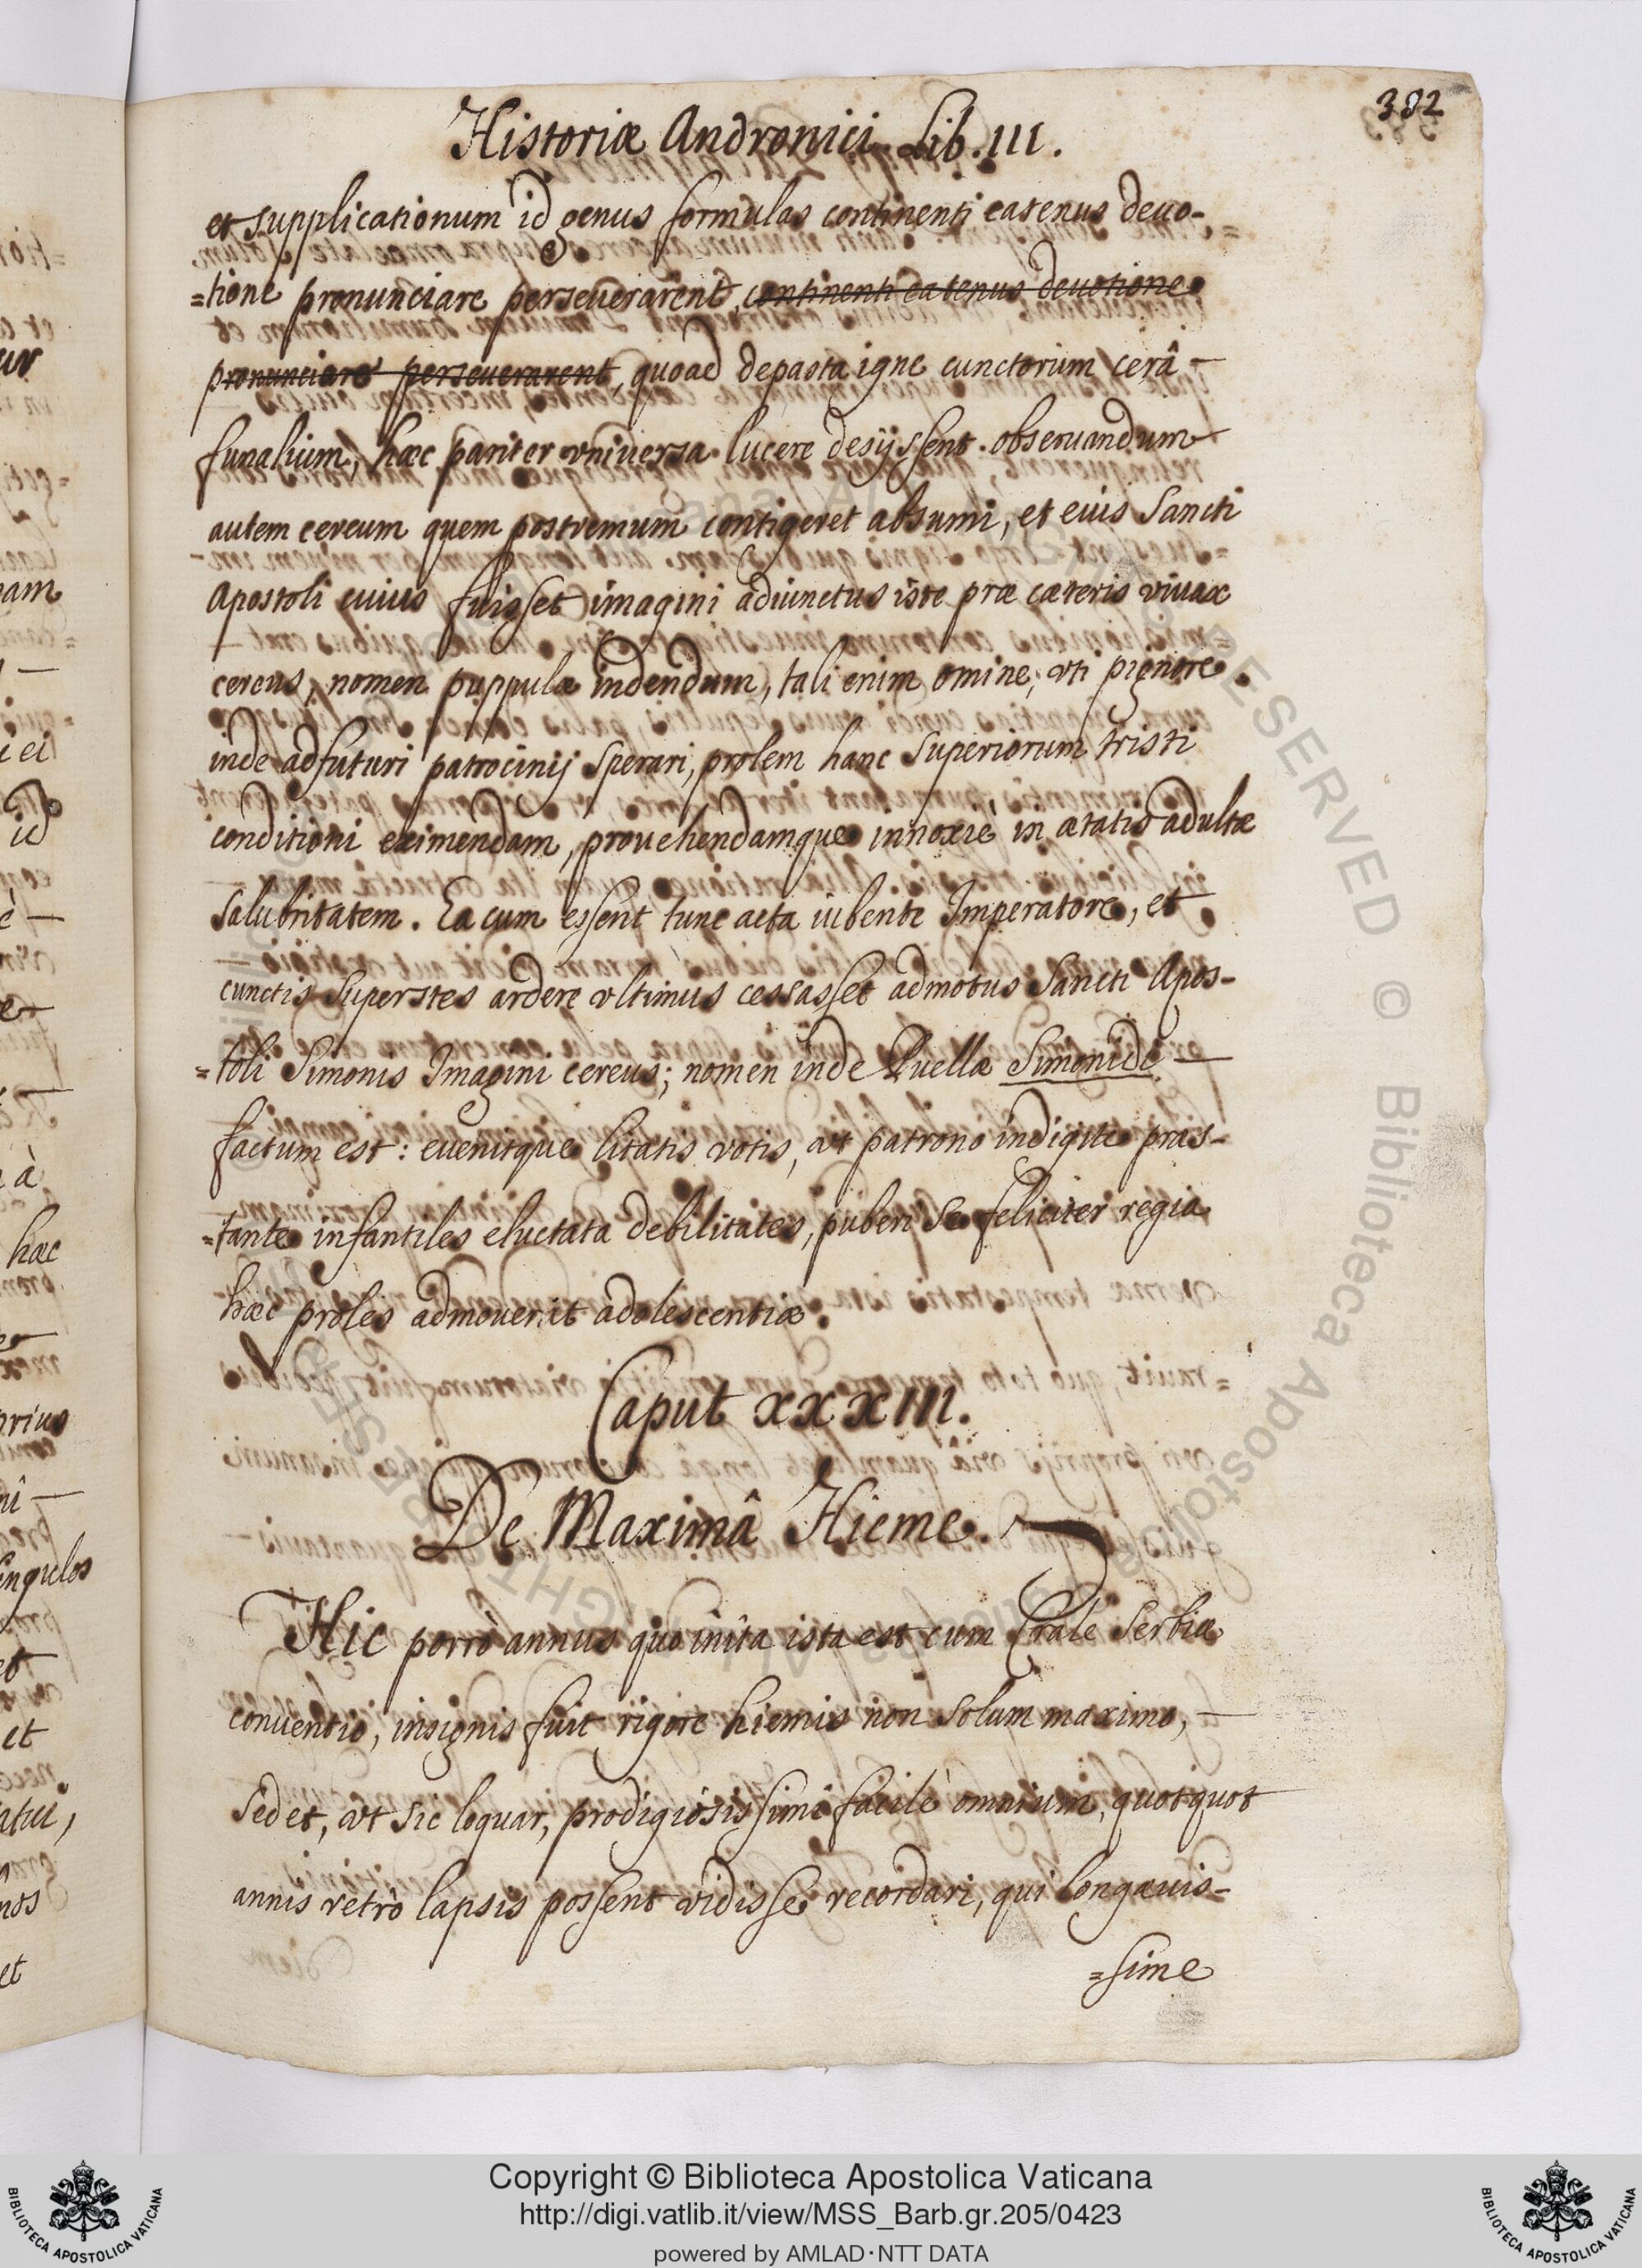 382
Historiæ Andronici Lib. III.
et supplicationum id genus formulas continenti eatenus deuo-
=tione pronunciare perseuerarent, continenti eatenus deuotione
pronunciare perseuerarent, quoad depasta igne cunctorum cerâ —
funalium, hæc pariter vniversa lucere desijssent. obseruandum
autem cereum quem postremum contigeret absumi, et eius Sancti
Apostoli cuius fuisset imagini adiunctus iste præ cæteris viuax
cereus, nomen puppulæ indendum, tali enim omine, vti pignore
inde adfuturi patrocinij sperari, prolem hanc superiorum tristi
conditioni eximendam, prouehendamque innoxiè in ætatis adultæ
salubritatem. Ea cum essent tunc acta iubente Imperatore, et
cunctis superstes ardere vltimus cessasset admotus Sancti Apos-
=toli Simonis Imagini cereus; nomen inde Puellæ Simonidi —
factum est: euenitque litatis votis, vt patrono indigite præs-
=tante infantiles eluctata debilitates, puberi se feliciter regia
hæc proles admouerit adolescentiæ.
Caput XXXIII.
De Maximâ Hieme.
Hic porrò annus quo inîta ista est cum Crale Serbiæ
conuentio, insignis fuit rigore hiemis non solum maximo, —
sed et, vt sic loquar, prodigiosissimi facilè omnium, quotquot
annis retrò lapsis possent vidisse recordari, qui longæuis-
=sime
Copyright © Biblioteca Apostolica Vaticana
http://digi.vatlib.it/view/MSS_Barb.gr.205/0423
powered by AMLAD·NTT DATA
BIBLIOTECA APOSTOLICA VATICANA
BIBLIOTECA APOSTOLICA VATICANA